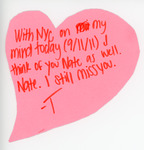 With NYC on my
mind today (9/11/11) I
think of you Nate as well.
Nate. I still miss you.
-T